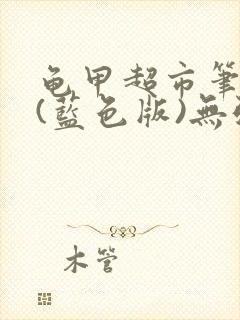 龟甲超市筆
(藍色版)無
木管